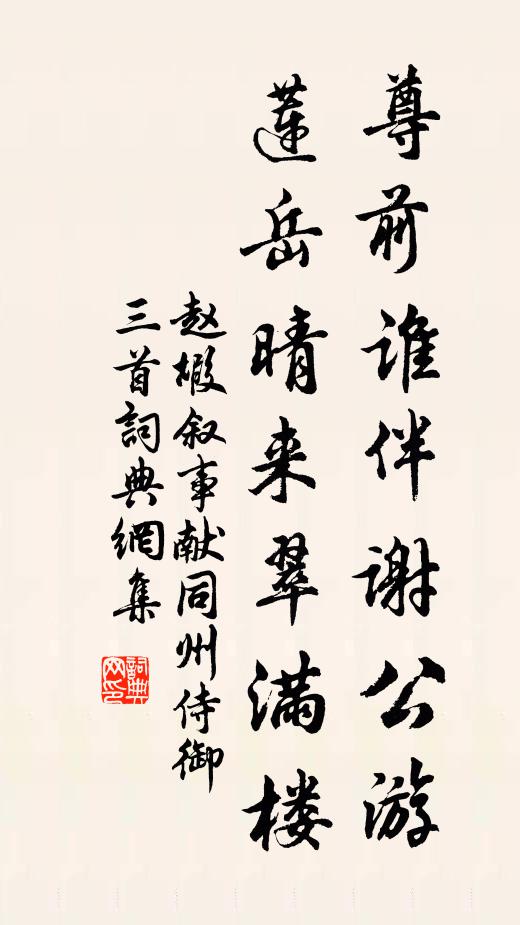 尊前谁伴谢公游
莲岳晴来翠满楼
赵嘏叙事献同州侍御
三首詞典網集
詞典網印